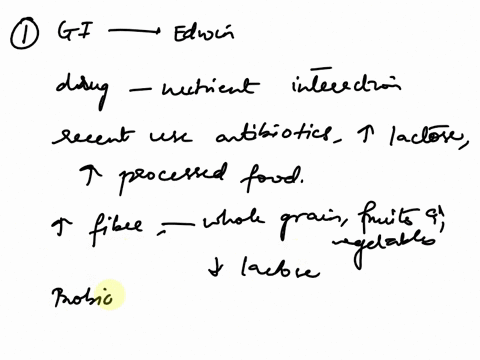 ① GI → Edwin
drug — nutrient interection
recent use antibiotics. ↑ lactose,
↑ processed food.
↑ fibre, — whole grain, fruits &
vegetables
↓ lactose
Probio